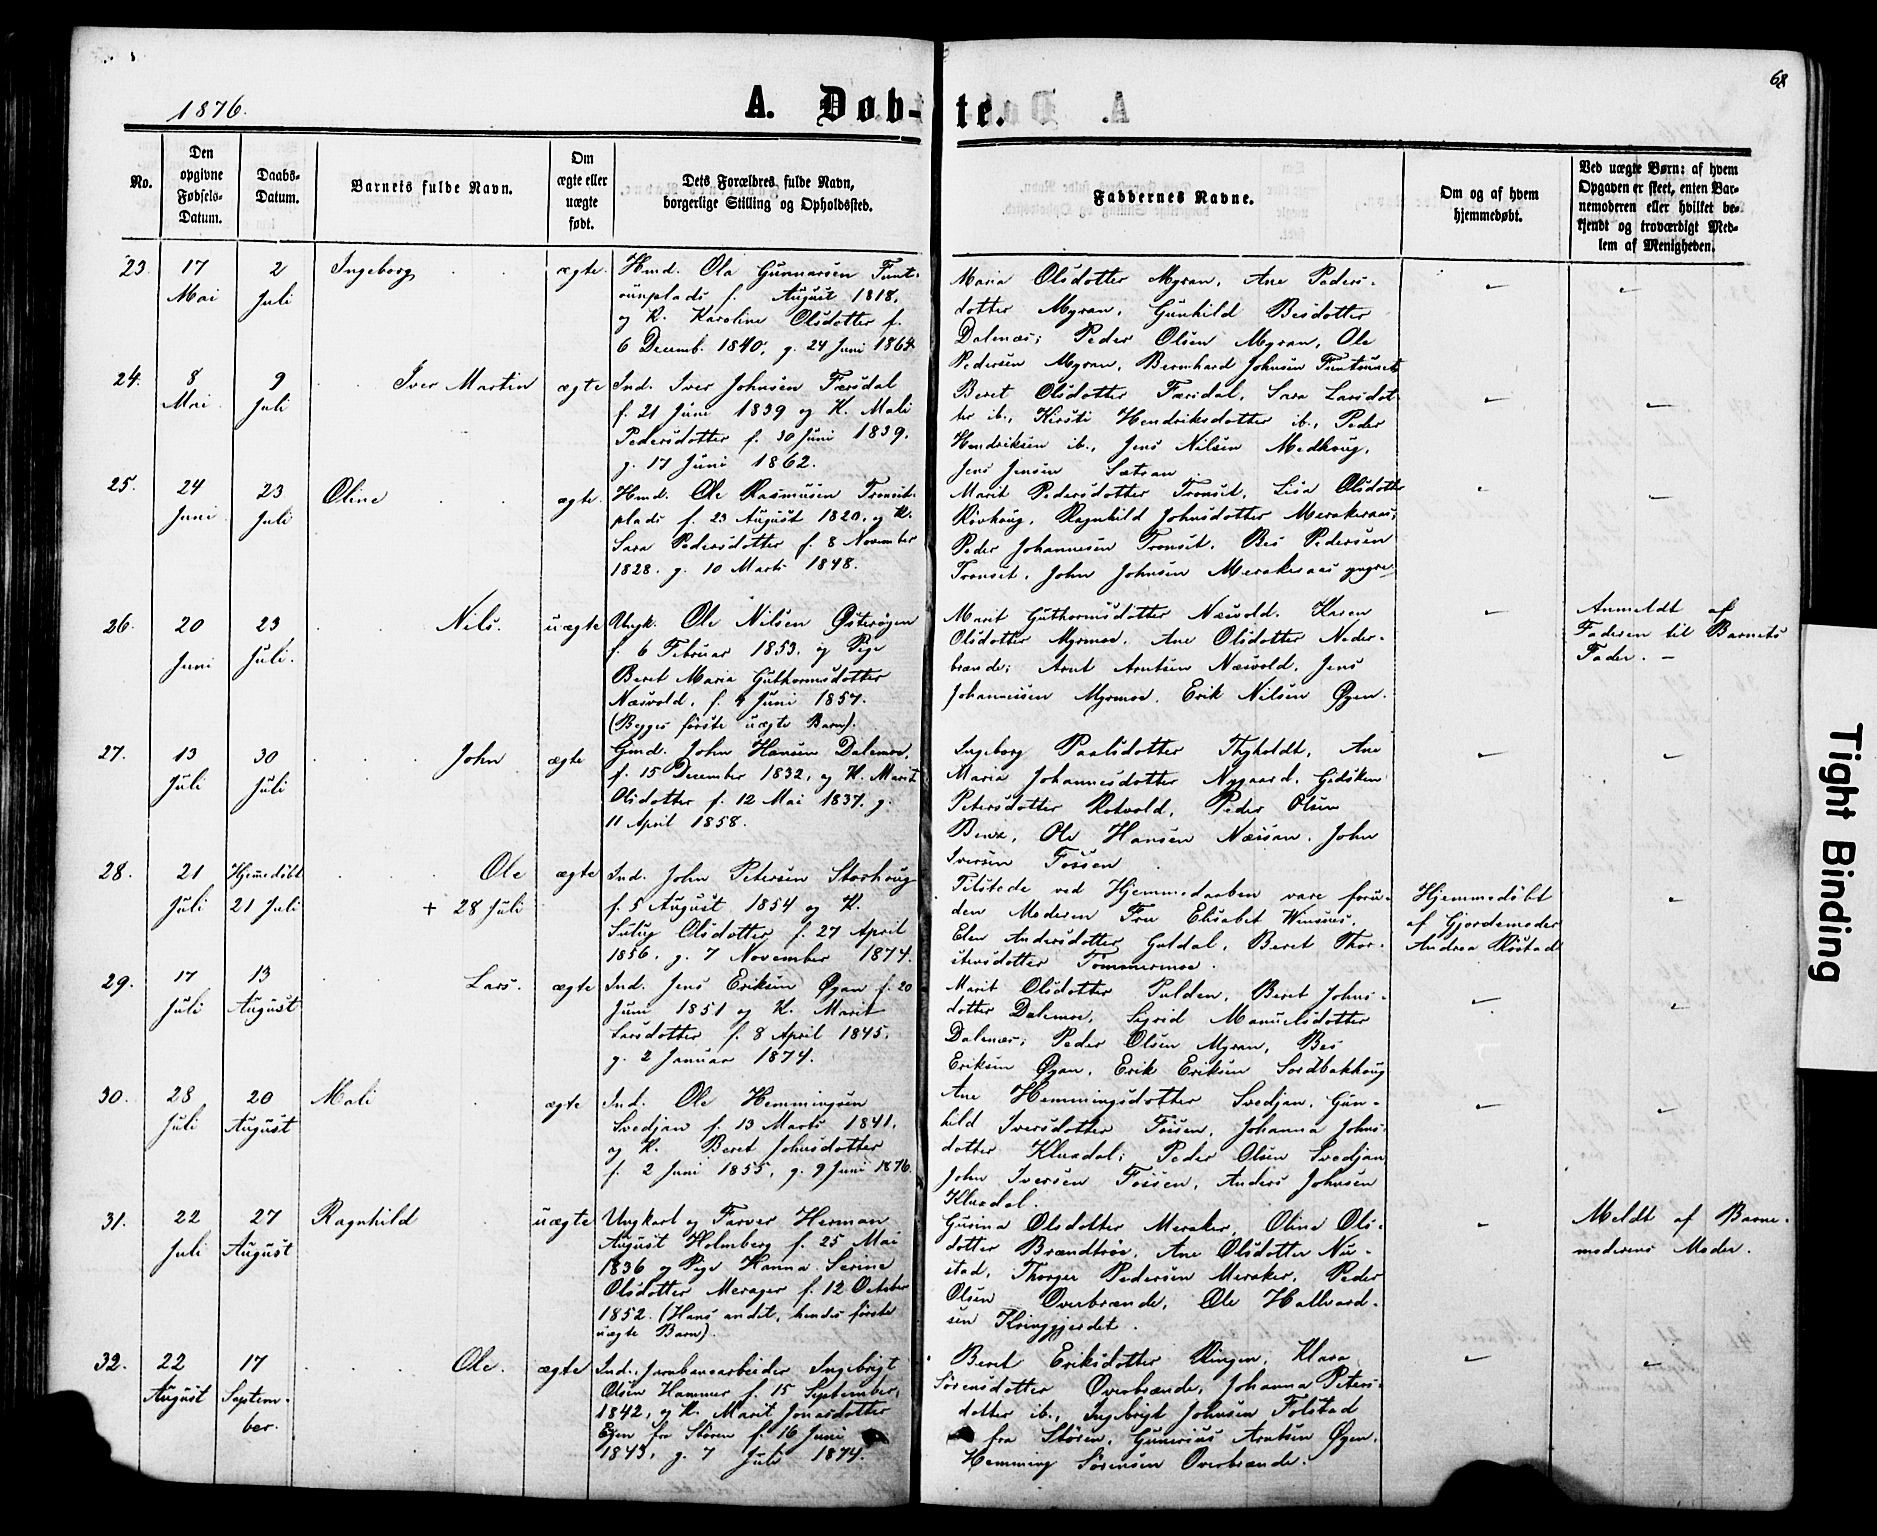 68
1876.
A. Døb-
te.
No.
Den
opgivne
Fødsels-
Datum.
Daabs-
Datum.
Barnets fulde Navn.
Om
ægte eller
uægte
født.
Dets Forældres fulde Navn,
borgerlige Stilling og Opholdssted.
Faddernes Navne.
Om og af hvem
hjemmedøbt.
Ved uægte Børn: af hvem
Opgaven er skeet, enten Bar-
nemoderen eller hvilket be-
kjendt og troværdigt Med-
lem af Menigheden.
23.
17
Mai
2
Juli
Ingeborg
ægte
Hmd. Ola Gunnarsen Funt-
aunplads f. August 1818,
og K. Karoline Olsdotter f.
6 Decemb. 1840, g. 24 Juni 1864
Maria Olsdotter Myran, Ane Peders-
dotter Myran, Gunhild Besdotter
Dalenæs; Peder Olsen Myran, Ole
Pedersen Myran, Bernhard Johnsen Funtaunet
24.
8
Mai
9
Juli
Iver Martin
ægte
Ind. Iver Johnsen Færsdal
f. 21 Juni 1839 og K. Mali
Pedersdotter f. 30 Juni 1839.
g. 17 Juni 1862.
Beret Olsdotter Færsdal, Sara Larsdot-
ter ib., Kirsti Hendriksdotter ib., Peder
Hendriksen ib., Jens Nilsen Medhoug,
Jens Jensen Sætran
25.
24
Juni
23
Juli
Oline
ægte
Hmd. Ole Rasmusen Tronset-
plads f. 23 August 1820, og K.
Sara Pedersdotter f. 8 November
1828. g. 10 Marts 1848.
Marit Pedersdotter Tronset, Lisa Olsdotter
Rivhoug, Ragnhild Johnsdotter Merakeraas;
Peder Johannesen Tronset, Bes Pedersen
Tronset, John Johnsen Merakeraas yngre
26.
20
Juni
23
Juli.
Nils.
uægte
Ungk. Ole Nilsen Østerøgen
f. 6 Februar 1853, og Pige
Beret Maria Guthormsdotter
Næsvold, f. 4 Juni 1857.
(Begges første uægte Barn).
Marit Guthormsdotter Næsvold, Karen
Olsdotter Myrmoe, Ane Olsdotter Neder-
brænde; Arnt Arntsen Næsvold, Jens
Johannesen Myrmoe, Erik Nilsen Øyen.
Anmeldt af
Faderen til Barnets
Fader. –
27.
13
Juli
30
Juli
John
ægte
Gmd. John Hansen Dalemoe,
f. 15 December 1832, og K. Marit
Olsdotter f. 12 Mai 1837. g.
11 April 1858.
Ingeborg Paalsdotter Thyholdt, Ane
Maria Johannesdotter Nygaard, Gidsken
Petersdotter Rotvold, Peder Olsen
Ole Hansen Næssan, John
Iversen Fossen
28.
21
Juli
Hjemedøbt
21 Juli
Ole
+ 28 Juli
ægte
Ind. John Petersen Storhoug
f. 5 August 1854 og K.
Olsdotter f. 27 April
1856, g. 7 November 1874.
Tilstede ved Hjemmedaaben vare foru-
den Moderen Fru Elisabet Winsnes,
Elen Andersdotter Guldal, Beret Thor-
stensdotter Tømmermoe.
Hjemmedøbt
af Gjordemoder
Andrea Røstad
29.
17
Juli
13
August
Lars.
ægte
Ind. Jens Eriksen Øyan f. 20
Juni 1851 og K. Marit
Larsdotter f. 8 April 1845,
g. 2 Januar 1874.
Marit Olsdotter Pulden, Beret Johns-
dotter Dalemoe, Sigrid Manuelsdotter
Dalenæs; Peder Olsen Myran, Bes
Eriksen Øyan, Erik Eriksen Sordbakhoug
30.
28
Juli
20
August
Mali
ægte
Ind. Ole Hemmingsen
Svedjan f. 13 Marts 1841,
og K. Beret Johnsdotter
f. 2 Juni 1855, g. 9 Juni 1876.
Ane Hemmingsdotter Svedjan, Gun-
hild Iversdotter Fossen, Johanna Johns-
dotter Kluxdal; Peder Olsen Svedjan
John Iversen Fossen, Anders Johnsen
Kluxdal.
31.
22
Juli
27
August
Ragnhild
uægte
Ungkarl og Farver Herman
August Holmberg f. 25 Mai
1836 og Pige Hanna Serine
Olsdotter Merager f. 12 October
1852. (Hans andet, hendes første
uægte Barn).
Gurina Olsdotter Meraker, Oline Ols-
dotter Brændtrøe, Ane Olsdotter Nu-
stad, Thorger Pedersen Meraker, Peder
Olsen Overbrænde, Ole Hallvard-
sen Kringgjerdet.
Meldt af Barne-
moderens Moder.
32.
22
August
17
Septem-
ber.
Ole.
ægte
Ind. Jernbanearbeider Ingebrigt
Olsen Hammer f. 15 September
1842, og K. Marit Jonasdotter
Egen fra Støren f. 16 Juni
1843, g. 7 Juli 1874.
Beret Eriksdotter Ringen, Klara
Sørensdotter Overbrænde, Johanna Peters-
dotter ib., Ingebrigt Johnsen Folstad
fra Støren, Gunerius Arntsen Øyen,
Hemming Sørensen Overbrænde.
Tight Binding